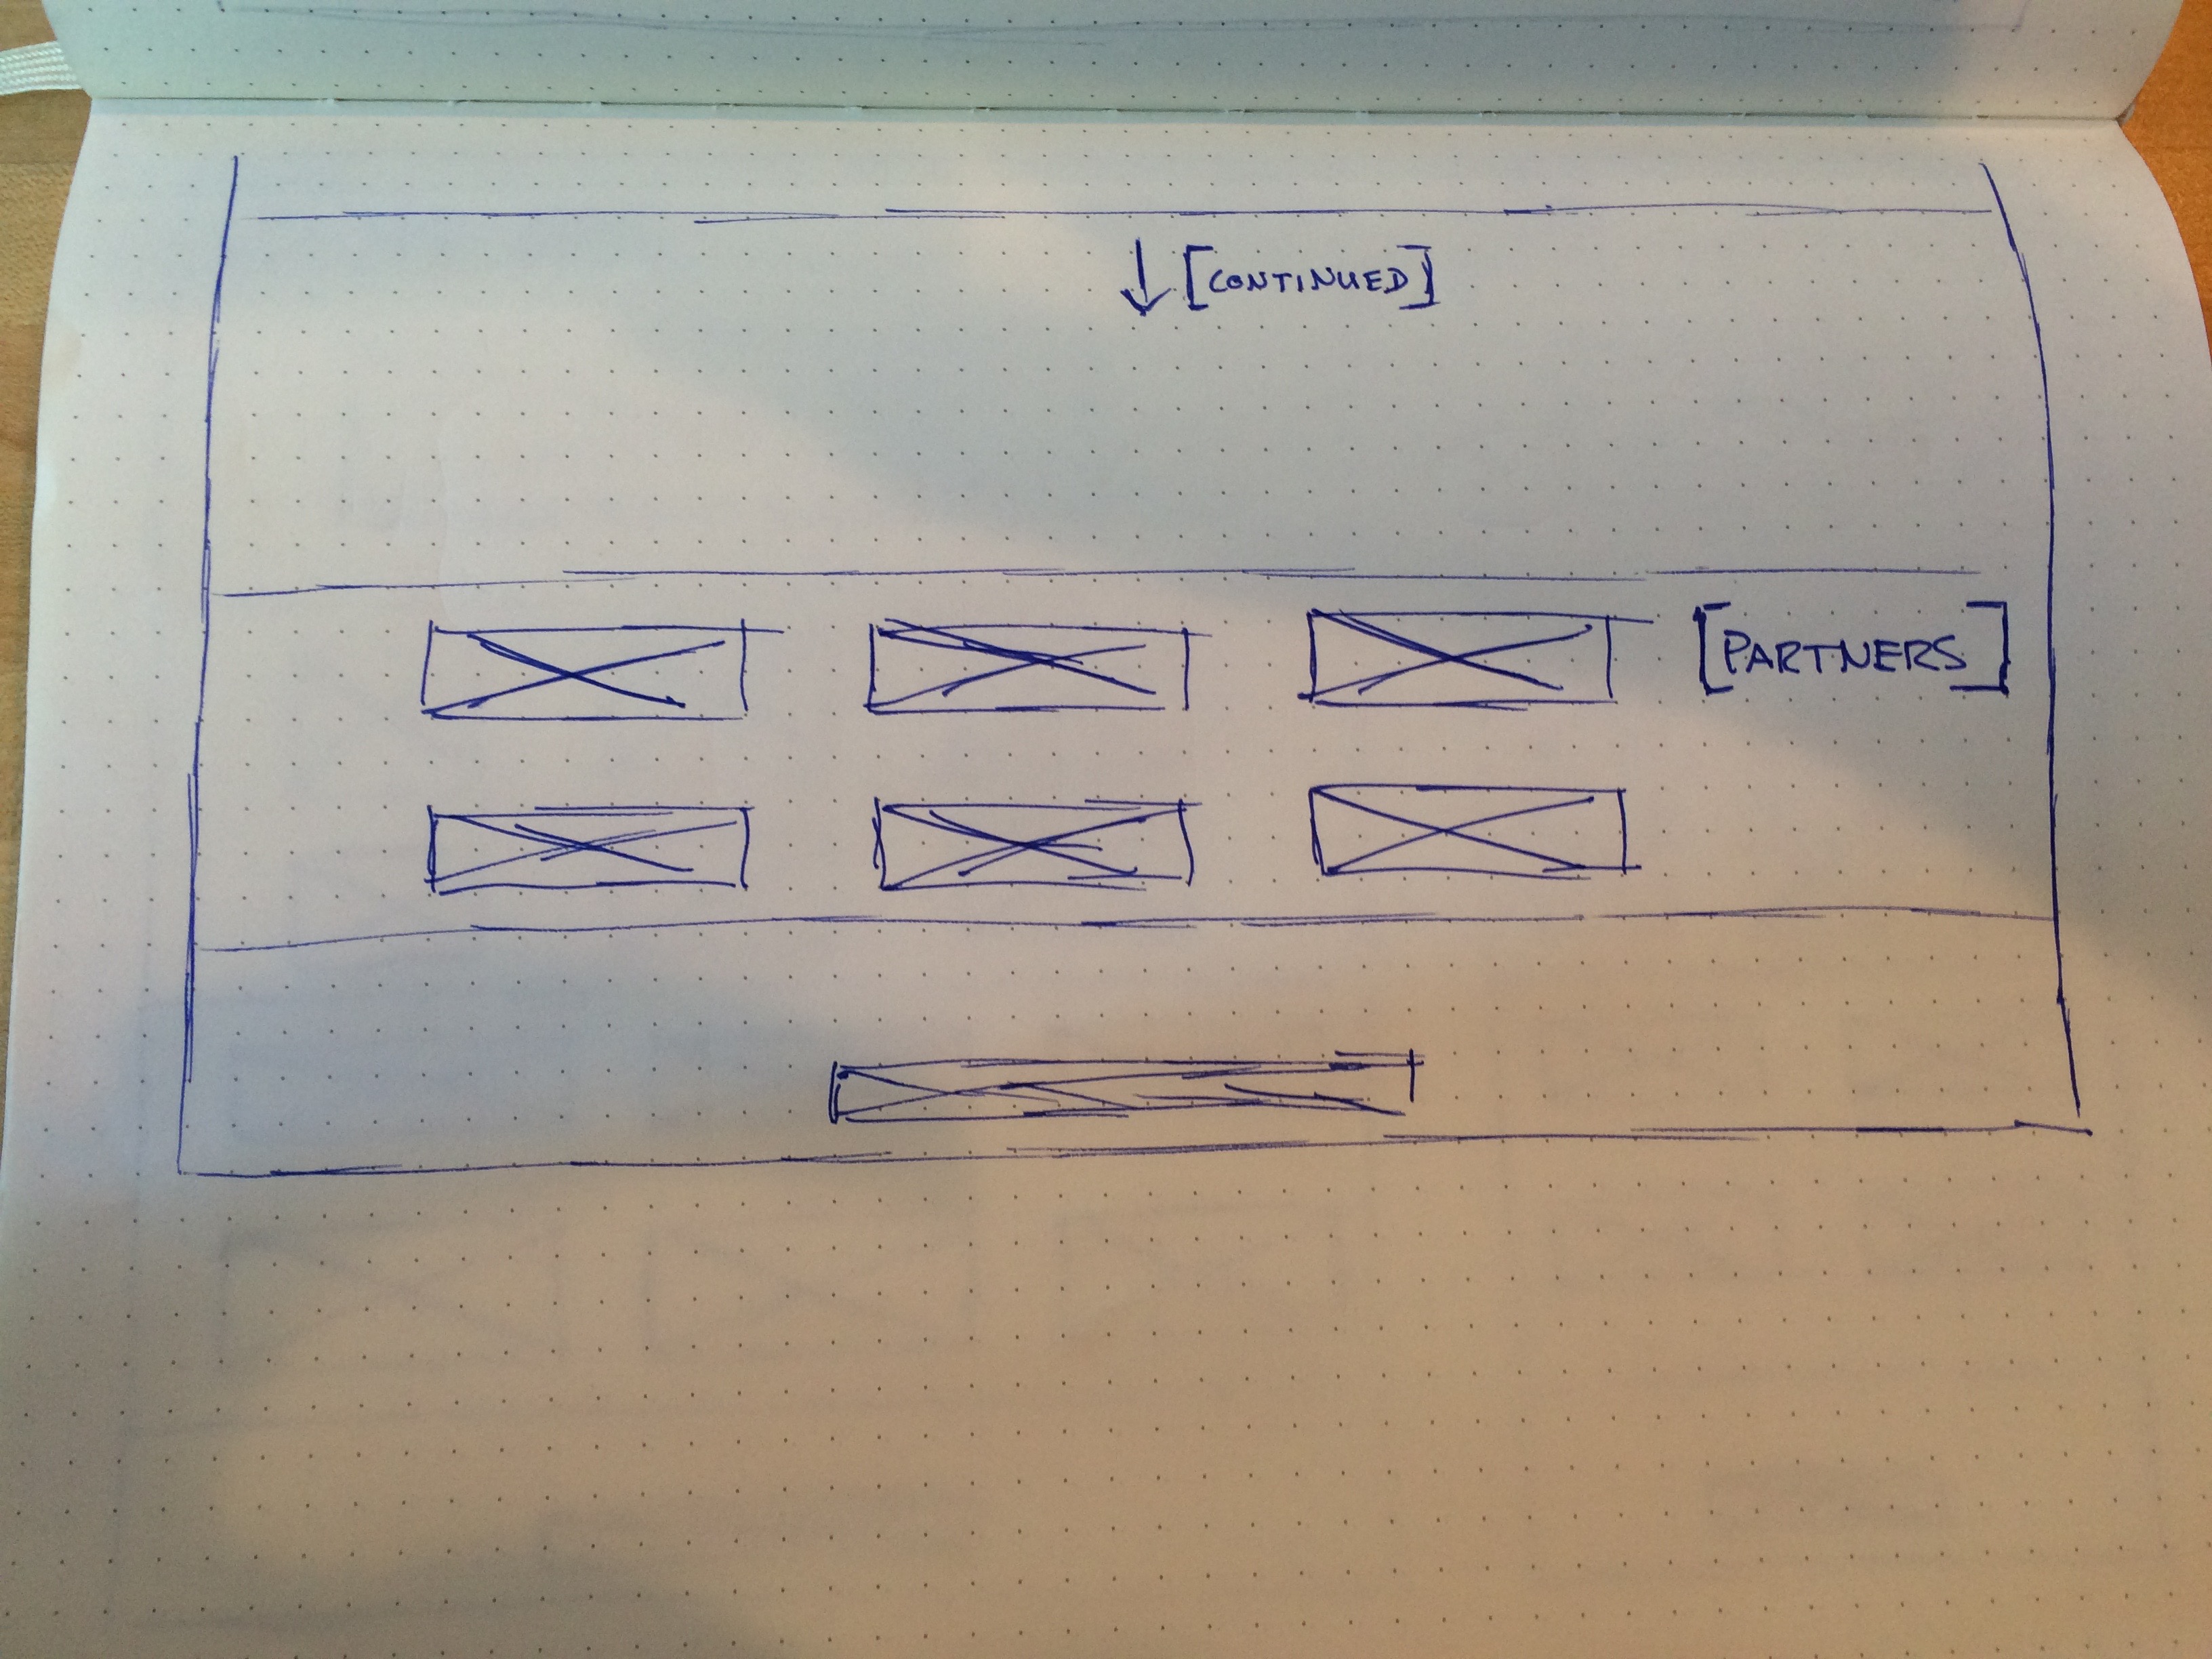 ↓ [CONTINUED]
[PARTNERS]